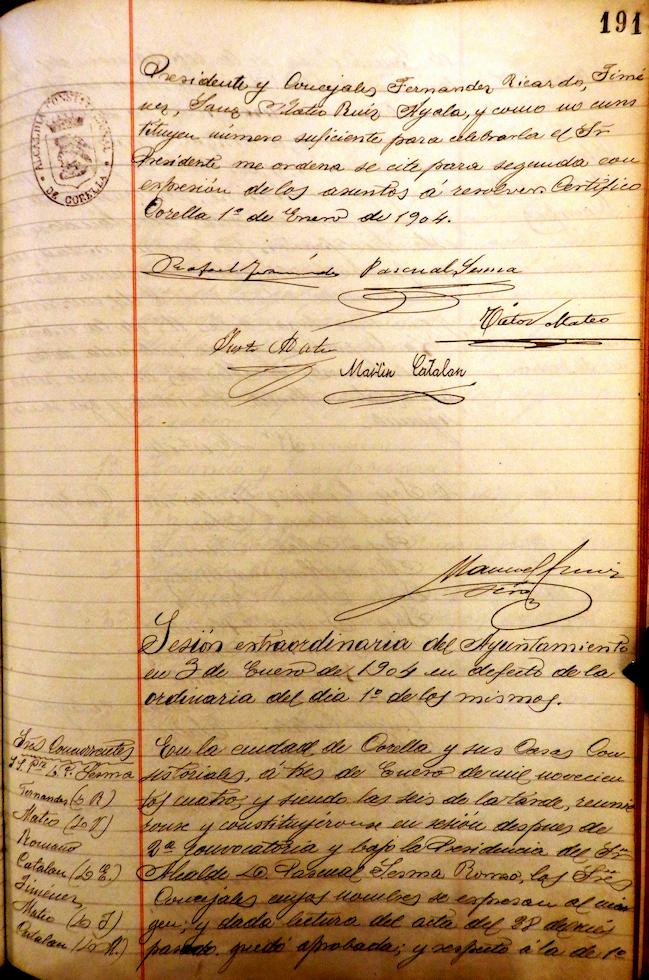 191
ALCALDIA CONSTITUCIONAL
DE CORELLA
Presidente y Concejales Fernandez Ricardo, Jimé
nez, Sanz Mateo Ruiz Ayala, y como no cons
tituyen número suficiente para celebrarla el Sr.
Presidente me ordena se cite para segunda con
expresión de los asuntos á resolver. Certifico
Corella 1º de Enero de 1904.
Pascual Sesma
Victor Mateo
Justo Mateo
Martin Catalan
Manuel
Sesión extraordinaria del Ayuntamiento
en 3 de Enero de 1904 en defecto de la
ordinaria del dia 1º de los mismos.
Sres Concurrentes
Sr. Pte D. P. Sesma
Fernandez (D R)
Mateo (D V)
Romano
Catalan (D E.)
Jiménez,
Mateo (D J)
Catalan (D M.)
En la ciudad de Corella y sus Casas Con
sistoriales, á tres de Enero de mil novecien
tos cuatro; y siendo las seis de la tarde, reunié
ronse y constituyéronse en sesión despues de
2ª Convocatoria y bajo la Presidencia del Sr.
Alcalde D. Pascual Sesma Romeo, los Sres
Concejales cuyos nombres se expresan al mar
gen; y dada lectura del acta del 28 del mes
pasado quedó aprobada; y respecto á la de 1º